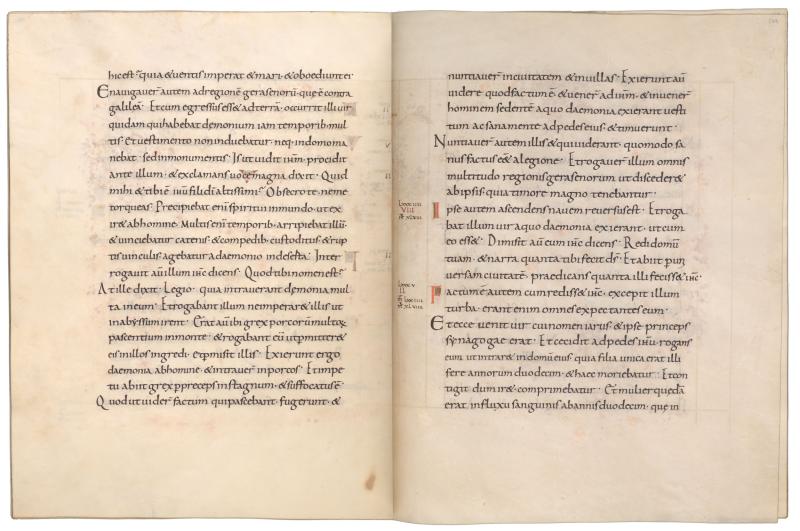 hic est quia & uentis imperat & mari & oboediunt ei
Enauigauer̅ autem ad regione̅ gerasenoru̅ que e̅ contra
galilea̅ Et cum egressus ess& ad terra̅ occurrit illi uir
quidam qui habebat demonium iam temporib. mul
tis Et uestimento non induebatur neq. in domo ma
nebat sed in monumentis Is ut uidit ih̅m procidit
ante illum & exclamans uoce magna dixit Quid
mihi & tibi e̅ ih̅u fili di̅ altissimi Obsecro te ne me
torqueas Precipiebat eni̅ spiritui inmundo ut ex
ir& ab homine Multis eni̅ temporib. arripiebat illu̅
& uinciebatur catenis & compedib. custoditus & rup
tis uinculis agebatur a daemonio in deserta Inter
rogauit au̅ illum ih̅c dicens Quod tibi nomen est
At ille dixit Legio quia intrauerant demonia mul
ta in eum Et rogabant illum ne imperar& illis ut
in abyssum irent Erat au̅ ibi grex porcorum multoru̅
pascentium in monte & rogabant eu̅ ut pmitter&
eis in illos ingredi et pmisit illis Exierunt ergo
daemonia ab homine & intrauer̅ in porcos Et impe
tu abiit grex p preceps in stagnum & suffocatus e̅
Quod ut uider̅ factum qui pascebant fugerunt &
nuntiauer̅ in ciuitatem & in uillas Exierunt au̅
uidere quod factum e̅ & uener̅ ad ih̅m & inuener̅
hominem sedente̅ a quo daemonia exierant uesti
tum ac sana mente ad pedes eius & timuerunt
Nuntiauer̅ autem illis & qui uiderant quomodo sa
nus factus e& a legione Et rogauer̅ illum omnis
multitudo regionis gerasenorum ut disceder&
ab ipsis quia timore magno tenebantur
Ipse autem ascendens nauem reuersus est Et roga
bat illum uir a quo daemonia exierant ut cum
eo ess& Dimisit au̅ eum ih̅c dicens Redi domu̅
tuam & narra quanta tibi fecit ds̅ Et abiit p uni
uersam ciuitate̅ praedicans quanta illi feciss& ih̅c
Factum e̅ autem cum rediss& ih̅c excepit illum
turba erant enim omnes expectantes eum
Et ecce uenit uir cui nomen iarus & ipse princeps
synagogae erat Et cecidit ad pedes ih̅u rogans
eum ut intrar& in domu̅ eius quia filia unica erat illi
fere annorum duodecim & haec moriebatur Et con
tigit dum ir& comprimebatur Et mulier queda̅
erat in fluxu sanguinis ab annis duodecim que in